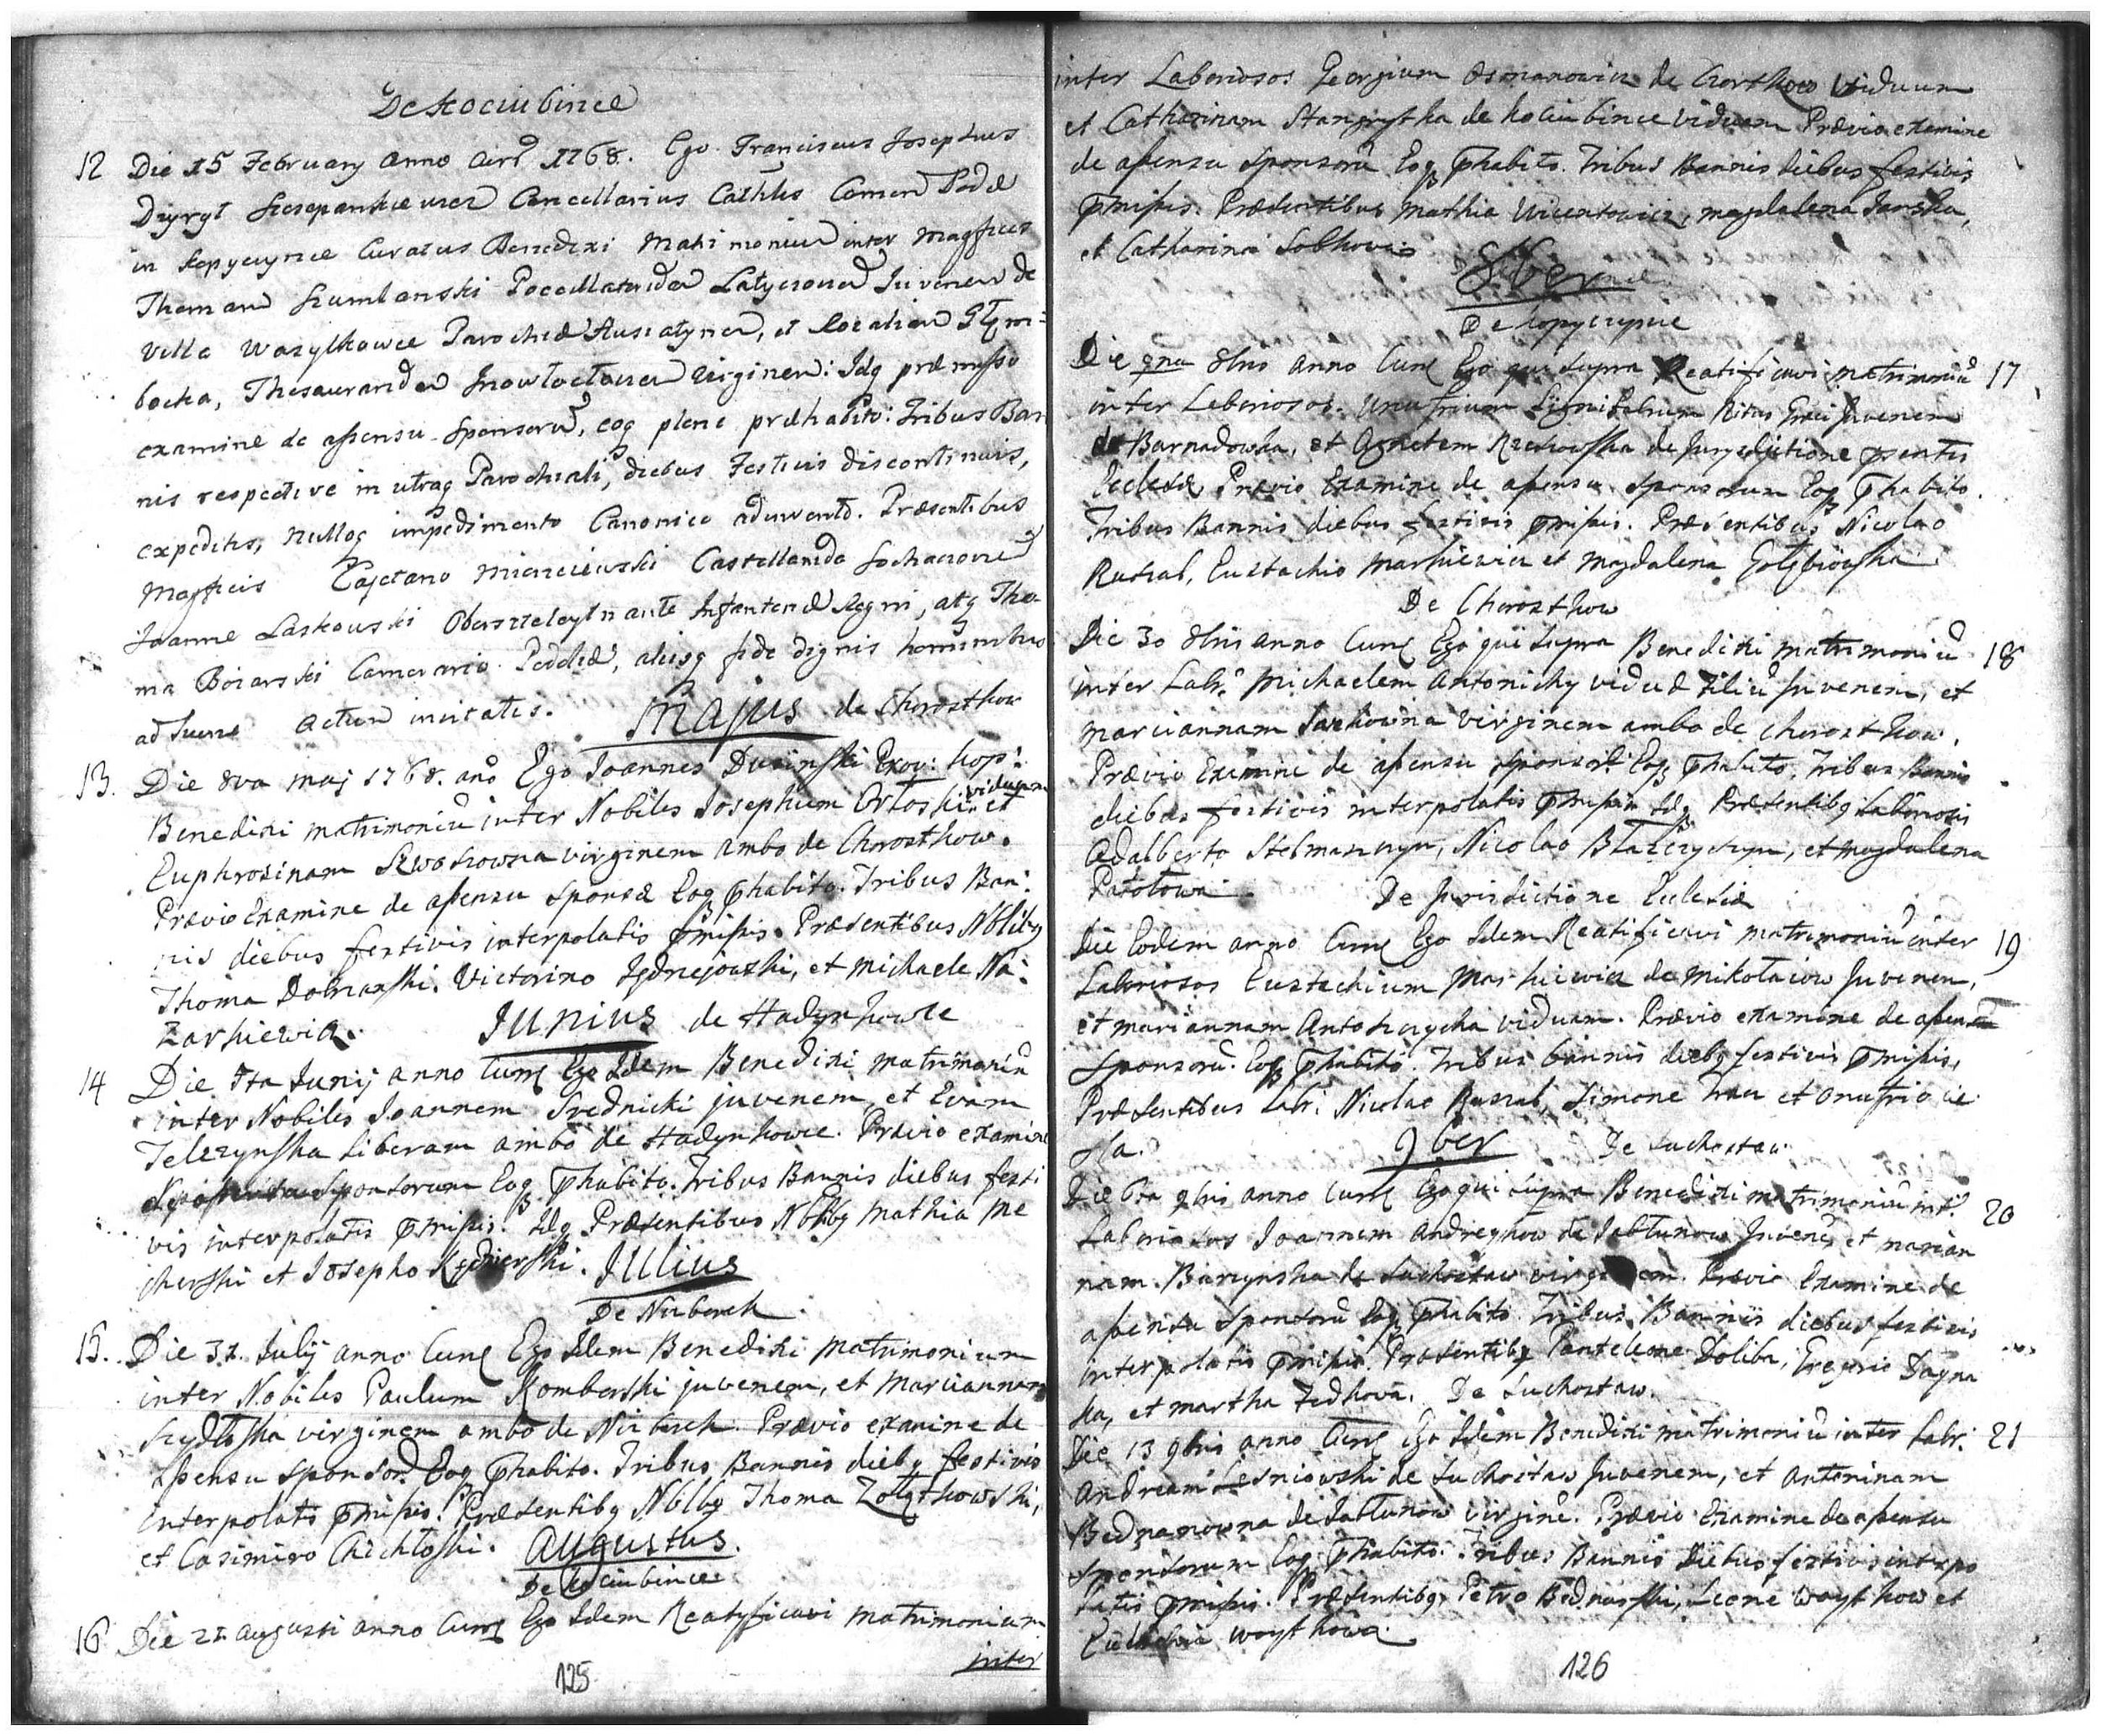 De Kociubince
12 Die 15 February anno Curr 1768. Ego Franciscus Josephus
Dyzyt Szczepankiewicz Cancellarius Cathlis Camen Podo
in Kopyczynce Curatus Benedixi Matrimonium inter Magficos
Thoman Szumlanski Pocillatorida Latyczovien Juvenen de
Villa Wasylkowce Parochiæ Husiatynen, et Rozalian Głem:
bocka, Thesaurarida Inowłoclavien virginen: Idq præmisso
examine de assensu Sponsorū, eoq plene præhabito: Tribus Ban
nis respective in utraq Parochiali, diebus Festivis discontinuis,
expeditis, nulloq impedimento Canonico advento. Præsentibus
Magficis Cajetano Mierzeiewski Castellanida Sochaczovien
Joanne Laskowski Obersztleytnante Infanteriæ Regni, atq Tho-
ma Boiarski Camerario Podoliæ, aliisq fide dignis hominibus
ad hunc actum invitatis. Majus de Chorostkow
13. Die 8va Maj 1768. ano Ego Joannes Dusinski Prov: Kop:
Benedixi matrimoniū inter Nobiles Josephum Orłoski viduum et
Euphrosinam Szwoszowna virginem ambo de Chorostkow.
Prævio Examine de assensu Sponsæ Eoq phabito. Tribus Ban:
nis diebus festivis interpolatis pmissis. Præsentibus Nblibq
Thoma Dobrzanski. Victorino Jędrzejowski, et Michaele Na:
Zarkiewicz. Junius de Hadynkowce
14 Die 5ta Junij anno Curr Ego Idem Benedixi matrimoniū
inter Nobiles Joannem Srednicki juvenem, et Evam
Telezynska Liberam ambo de Hadynkowce. Prævio examine
Sponsorum Eoq phabito. Tribus Bannis diebus festi
vis interpolatis pmissis. Idq Præsentibus Nblbq Mathia Me
cherski et Josepho Kędzierski. Julius
De Nizborch
15. Die 31. Julij anno Curr Ego Idem Benedixi Matrimonium
inter Nobiles Paulum Komberski juvenem, et Mariannam
Szydłoska virginem ambo de Nizborch. Prævio examine de
assensu Sponsorū Eoq phabito. Tribus Bannis diebq festivis
interpolatis pmissis. Præsentibq Nblbq Thoma Zołątkowski,
et Casimiro Chichłoski. Augustus.
De Kociubince
16 Die 21 Augusti anno Curr Ego Idem Reatyficavi Matrimonium
inter
125
inter Laboriosos Georgium Osmanowicz de Czortkow Viduum
et Catharinam Stangrytka de Kociubince viduam Prævio examine
de assensu Sponsorū Eoq phabito. Tribus Bannis diebus festivis
pmissis. Præsentibus Mathia Wicentowicz, Magdalena Janska,
et Catharina Sobkova
8ber
De Kopyczynce
Die 9na 8bris anno Curr Ego qui supra Reatificavi matrimoniū 17
inter Laboriosos. Onufrium Ritus Græci Juvenem
de Barnadowka, et Agnetem Rzetwoska de Jurysdictione psentis
Ecclesiæ Prævio Examine de assensu Sponsorum Eoq phabito.
Tribus Bannis diebus festivis pmissis. Præsentibus Nicolao
Russal, Eustachio Markiewicz et Magdalena Gołębiowska.
De Chorostkow
Die 30 8bris anno Curr Ego qui supra Benedixi matrimoniū 18
inter Labr. Michaelem Antonichy viduæ Filiū juvenem, et
Mariannam Jackowna virginem ambo de Chorostkow.
Prævio Examine de assensu Sponsorū Eoq phabito. Tribus Bannis
diebus festivis interpolatis pmissis Idq Præsentibq Laboriosis
Adalberto Stelmaszczyn, Nicolao Błazczyszyn, et Magdalena
Patołowa. De Jurisdictione Ecclesiæ
Die Eodem anno Curr Ego Idem Reatificavi matrimoniū inter 19
Laboriosos Eustachium Markiewicz de Mikołaiow Juvenem,
et Mariannam Antoszczycha viduam. Prævio examine de assensu
Sponsorū. Eoq phabito. Tribus bannis diebq festivis pmissis,
Præsentibus Labr: Nicolao Russal, Simone Trau et Onufrio Cie
sla. 9ber De Suchostaw
Die 6ta 9bris anno Curr Ego qui supra Benedixi matrimoniū int. 20
Laboriosos Joannem Andreykow de Jabłunow Juvenē, et Marian
nam. Barzynska de Suchostaw virginem. Prævio Examine de
assensu Sponsorū Eoq phabito. Tribus Bannis diebus festivis
interpolatis pmissis. Præsentibq Panteleone Doliba, Gregorio Dagna
ka, et Martha Fedkova. De Suchostaw.
Die 13 9bris anno Curr Ego Idem Benedixi matrimoniū inter Labr: 21
Andream Lesniowski de Suchostaw Juvenem, et Antoninam
Bednarowna de Jabłunow virginē. Prævio Examine de assensu
Sponsorum Eoq phabito. Tribus Bannis Diebus festivis interpo
latis pmissis. Præsentibq Petro Bednarski, Leone Woytkow et
Eudochia Woytkowa.
126